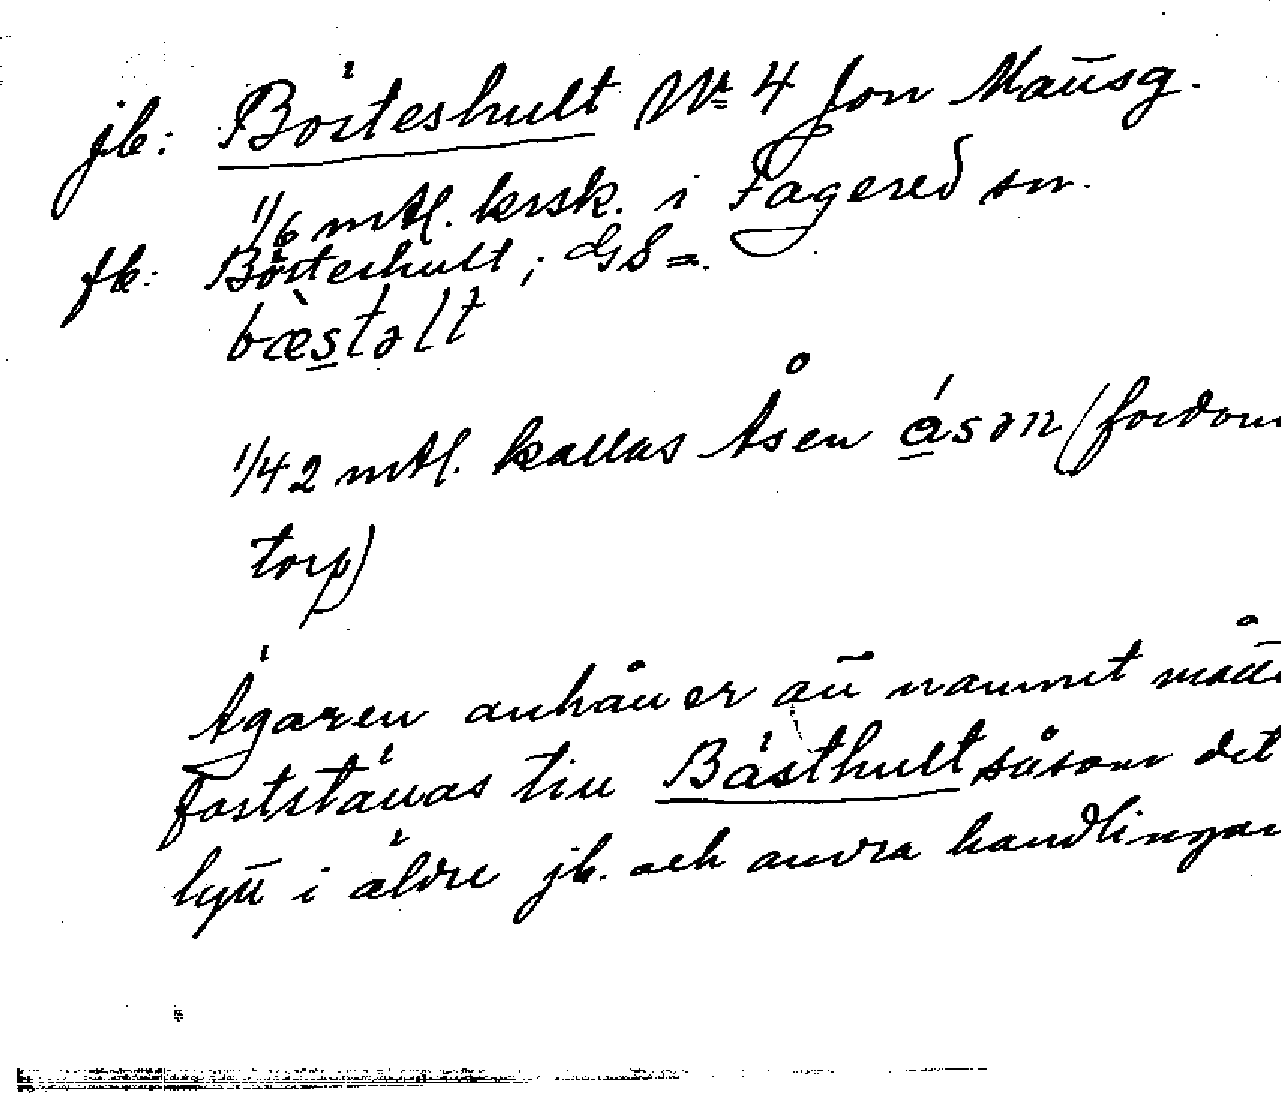 jb: Bösteshult № 4 Jon Månsg.
1/6 mtl. krsk. i Fagered sn.
fk: Bösteshult; GS =.
bæ̀stəlt
1/42 mtl. kallas Åsen ásən (fordom
torp)
Ägaren anhåller att namnet måtte
fastställas till Bästhult såsom det
lytt i äldre jb. och andra handlingar